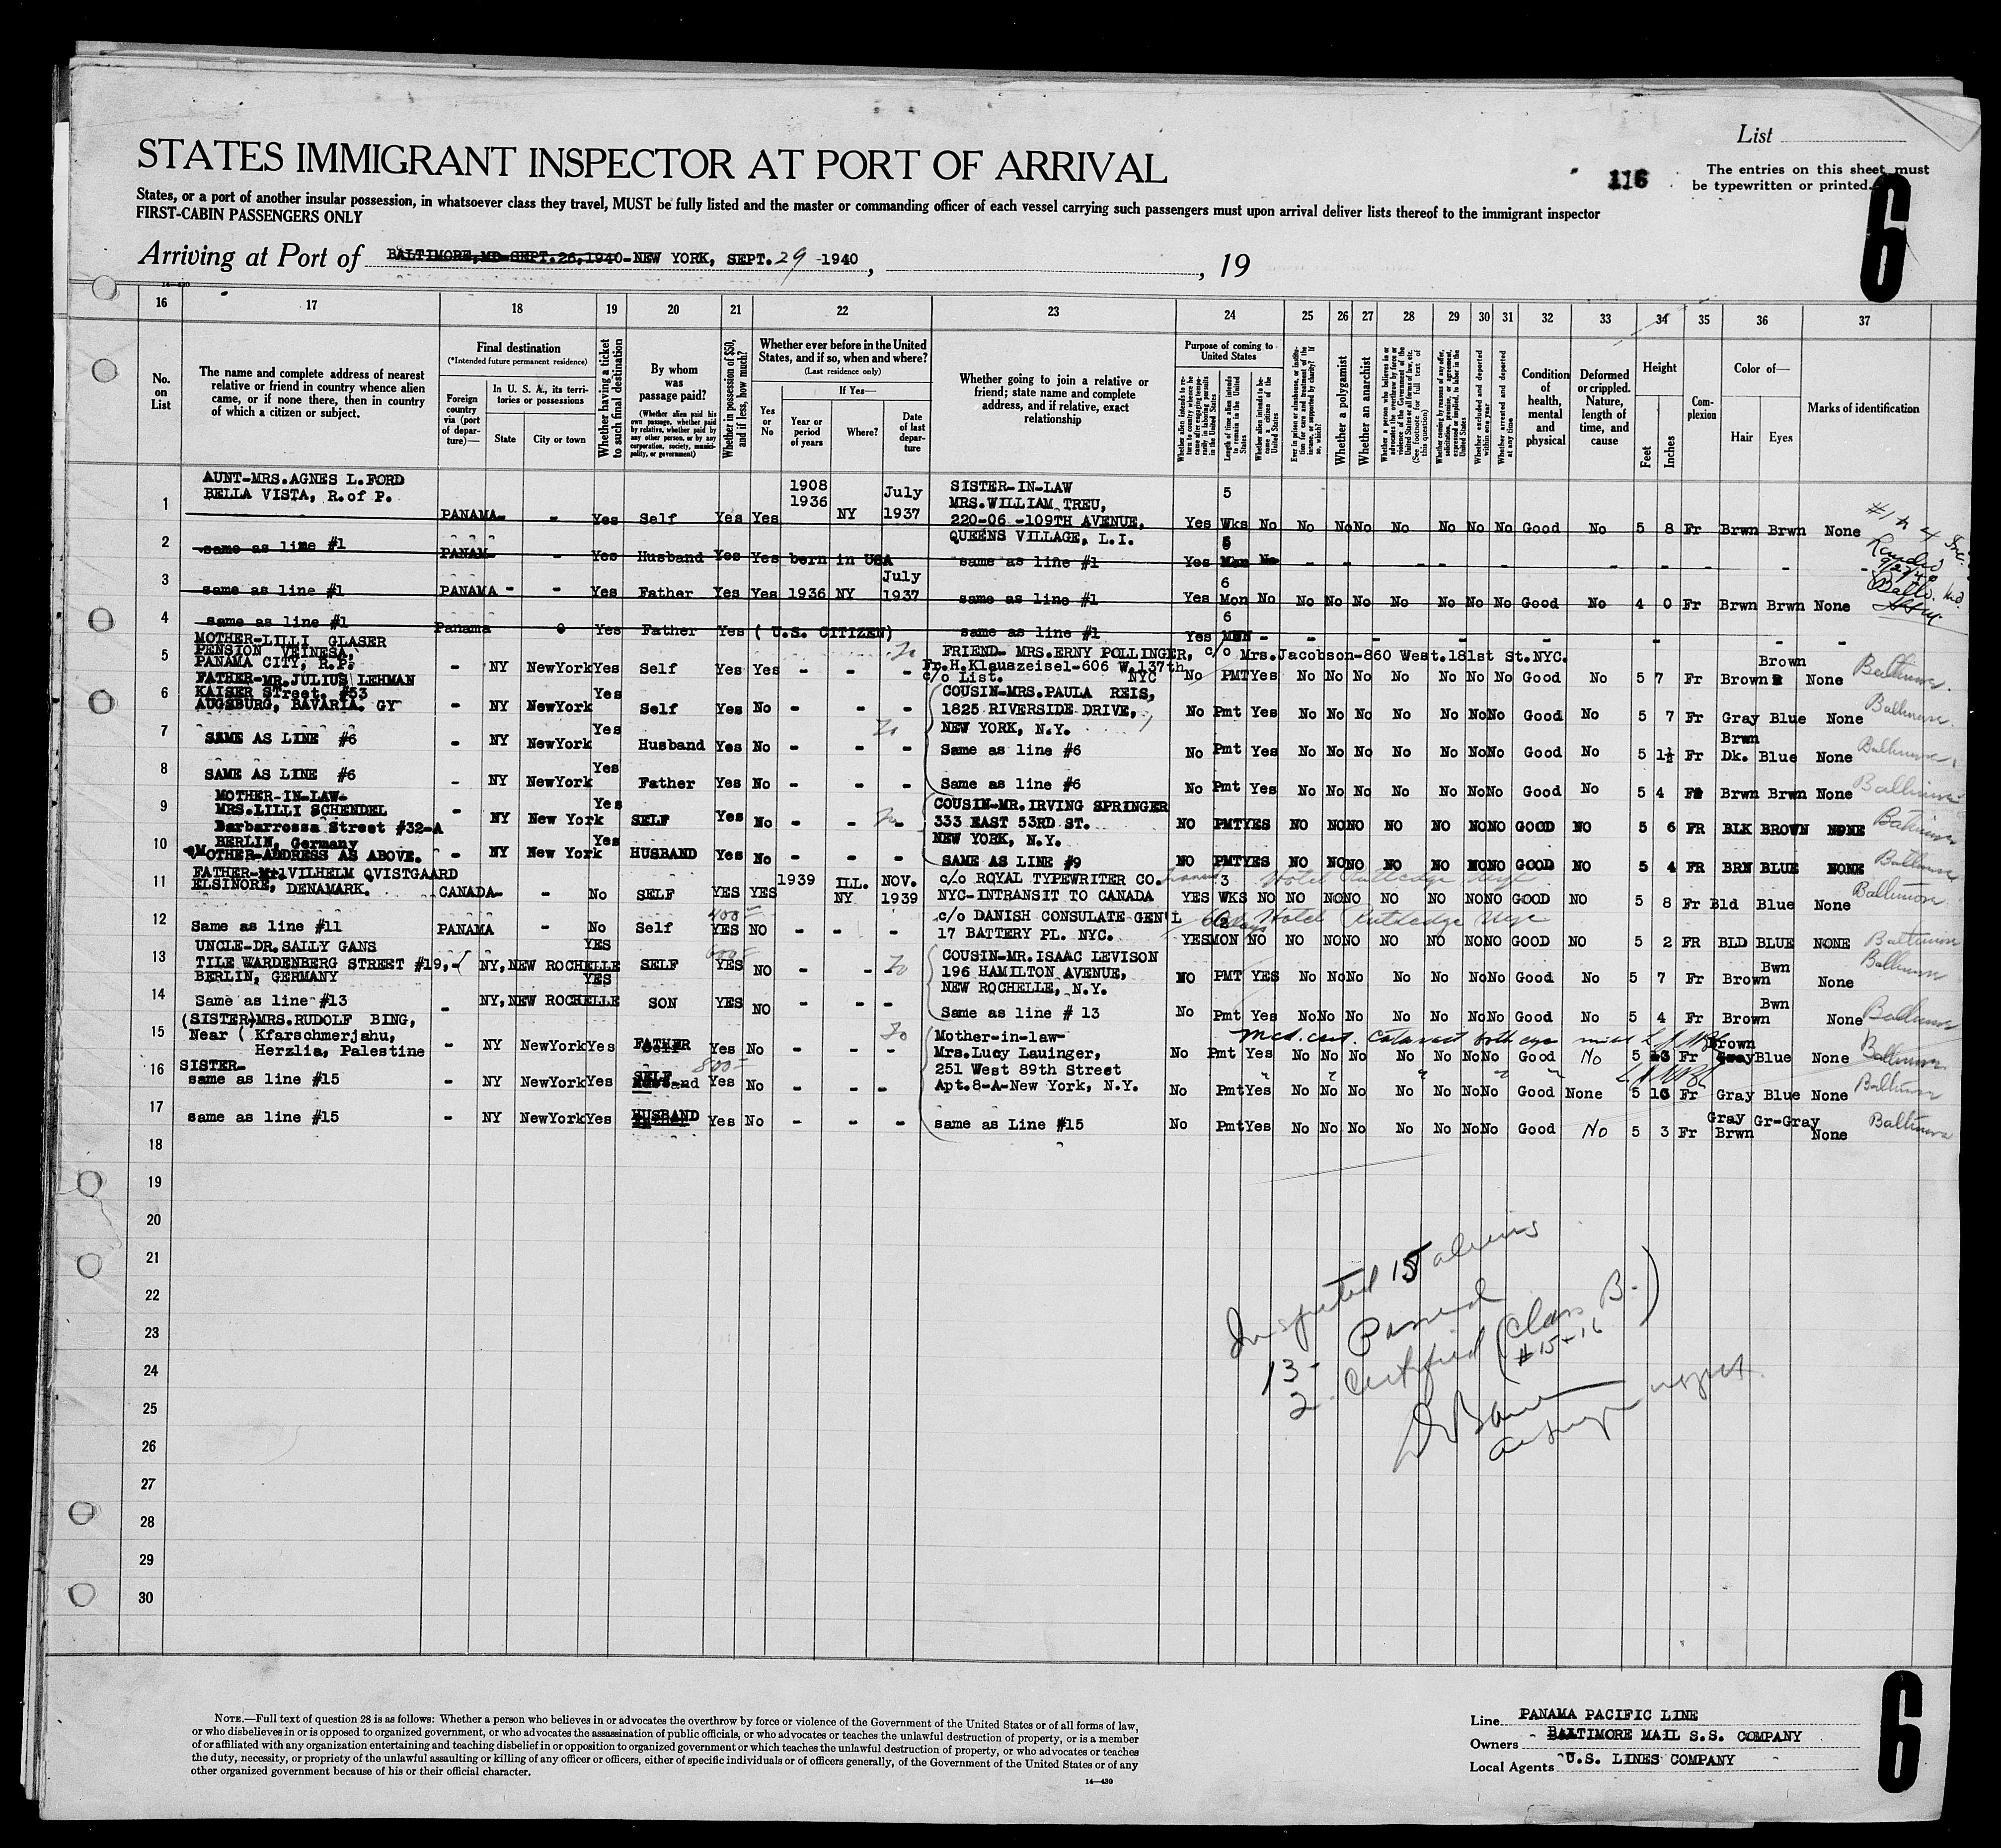 List
STATES IMMIGRANT INSPECTOR AT PORT OF ARRIVAL
116
The entries on this sheet must
be typewritten or printed.
6
States, or a port of another insular possession, in whatsoever class they travel, MUST be fully listed and the master or commanding officer of each vessel carrying such passengers must upon arrival deliver lists thereof to the immigrant inspector
FIRST-CABIN PASSENGERS ONLY
Arriving at Port of BALTIMORE, MD-SEPT.26,1940-NEW YORK, SEPT. 29 -1940, , 19
14—430
16 17 18 19 20 21 22 23 24 25 26 27 28 29 30 31 32 33 34 35 36 37
No. on List
The name and complete address of nearest relative or friend in country whence alien came, or if none there, then in country of which a citizen or subject.
Final destination
(*Intended future permanent residence)
Foreign country via (port of departure)—
In U. S. A., its territories or possessions
State
City or town
Whether having a ticket to such final destination
By whom was passage paid?
(Whether alien paid his own passage, whether paid by relative, whether paid by any other person, or by any corporation, society, municipality, or government)
Whether in possession of $50, and if less, how much?
Whether ever before in the United States, and if so, when and where?
(Last residence only)
Yes or No
If Yes—
Year or period of years
Where?
Date of last departure
Whether going to join a relative or friend; state name and complete address, and if relative, exact relationship
Purpose of coming to United States
Length of time alien intends to remain in the United States
Whether alien intends to become a citizen of the United States
Whether a polygamist
Whether an anarchist
Whether excluded and deported within one year
Whether arrested and deported at any time
Condition of health, mental and physical
Deformed or crippled. Nature, length of time, and cause
Height
Feet
Inches
Complexion
Color of—
Hair
Eyes
Marks of identification
1 AUNT-MRS.AGNES L.FORD
BELLA VISTA, R.of P. PANAMA- - Yes Self Yes Yes 1908 1936 NY July 1937 SISTER-IN-LAW
MRS.WILLIAM TREU,
220-06 -109TH AVENUE,
QUEENS VILLAGE, L.I. Yes 5 Wks No No No No No No No No Good No 5 8 Fr Brwn Brwn None
2 same as line #1 PANAM- - Yes Husband Yes Yes born in USA same as line #1 Yes 6 Mon No - - - - - - - - - - - - - -
3 same as line #1 PANAMA - - Yes Father Yes Yes 1936 NY July 1937 same as line #1 Yes 6 Mon No No No No No No No No Good No 4 0 Fr Brwn Brwn None
4 same as line #1 Panama Yes Father Yes ( U.S. CITIZEN) same as line #1 Yes 6 MON - - - - - - - - -
5 MOTHER-LILLI GLASER
PENSION VEINESA,
PANAMA CITY, R.P. - NY NewYork Yes Self Yes Yes - - - FRIEND- MRS.ERNY POLLINGER, c/o Mrs.Jacobson-860 West.181st St.NYC.
Fr.H.Klauszeisel-606 W.137th NYC
c/o List. No PMT Yes No No No No No No No Good No 5 7 Fr Brown Brown None Baltimore.
6 FATHER-MR.JULIUS LEHMAN
KAISER STreet. #53
AUGSBURG, BAVARIA. GY - NY NewYork Yes Self Yes No - - - COUSIN-MRS.PAULA REIS,
1825 RIVERSIDE DRIVE,
NEW YORK, N.Y. No Pmt Yes No No No No No No No Good No 5 7 Fr Gray Blue None Baltimore.
7 SAME AS LINE #6 - NY NewYork Yes Husband Yes No - - - Same as line #6 No Pmt Yes No No No No No No No Good No 5 1½ Fr Brwn Dk. Blue None Baltimore.
8 SAME AS LINE #6 - NY NewYork Yes Father Yes No - - - Same as line #6 No Pmt Yes No No No No No No No Good No 5 4 Brwn Brwn None Baltimore
9 MOTHER-IN-LAW-
MRS.LILLI SCHENDEL
Barbarrossa Street #32-A
BERLIN, Germany - NY New York Yes SELF Yes No - - - COUSIN-MR.IRVING SPRINGER
333 EAST 53RD ST.
NEW YORK, N.Y. NO PMT YES NO NO NO NO NO NO NO GOOD NO 5 6 FR BLK BROWN NONE Baltimore
10 MOTHER-ADDRESS AS ABOVE. - NY New York Yes HUSBAND Yes No - - - SAME AS LINE #9 NO PMT YES NO NO NO NO NO NO NO GOOD NO 5 4 FR BRN BLUE NONE Baltimore
11 FATHER-Mr.VILHELM QVISTGAARD
ELSINORE, DENAMARK. CANADA- - No SELF YES YES 1939 ILL. NY NOV. 1939 c/o ROYAL TYPEWRITER CO.
NYC-INTRANSIT TO CANADA YES 3 WKS NO NO NO NO NO NO NO NO GOOD NO 5 8 Fr Bld Blue None Baltimore
Hotel Rutledge Nyc
12 Same as line #11 PANAMA - No Self YES NO - - - c/o DANISH CONSULATE GEN'L
17 BATTERY PL. NYC. YES MON NO NO NO NO NO NO NO NO GOOD NO 5 2 FR BLD BLUE NONE Baltimore
400 60 days Hotel Rutledge Nyc
13 UNCLE-DR.SALLY GANS
TILE WARDENBERG STREET #19,
BERLIN, GERMANY NY,NEW ROCHELLE YES SELF YES NO - - COUSIN-MR.ISAAC LEVISON
196 HAMILTON AVENUE,
NEW ROCHELLE, N.Y. NO PMT YES No No No No No No No Good No 5 7 Fr Brown Bwn None Baltimore
14 Same as line #13 - NY,NEW ROCHELLE YES SON YES NO - - - Same as line # 13 No Pmt Yes No No No No No No No Good No 5 4 Fr Brown Bwn None Baltimore
15 (SISTER)MRS.RUDOLF BING,
Near ( Kfarschmerjahu,
Herzlia, Palestine - NY NewYork Yes FATHER Yes No - - - Mother-in-law-
Mrs.Lucy Lauinger,
251 West 89th Street
Apt.8-A-New York, N.Y. No Pmt Yes No No No No No No No Good No 5 Fr Brown Blue None Baltimore
Med. cert. Cataract both eyes
16 SISTER-
same as line #15 - NY NewYork Yes SELF Yes No - - - No Pmt Yes No No No No No No No Good None 5 Fr Gray Blue None Baltimore
800
17 same as line #15 - NY NewYork Yes HUSBAND Yes No - - - same as Line #15 No Pmt Yes No No No No No No No Good No 5 3 Fr Gray Brwn Gr-Gray None Baltimore
18
19
20
21
22
23
24
25
26
27
28
29
30
Inspected 15 aliens
13- Passed
2- Certified (Class B.)
#15+16
NOTE.—Full text of question 28 is as follows: Whether a person who believes in or advocates the overthrow by force or violence of the Government of the United States or of all forms of law,
or who disbelieves in or is opposed to organized government, or who advocates the assassination of public officials, or who advocates or teaches the unlawful destruction of property, or is a member
of or affiliated with any organization entertaining and teaching disbelief in or opposition to organized government or which teaches the unlawful destruction of property, or who advocates or teaches
the duty, necessity, or propriety of the unlawful assaulting or killing of any officer or officers, either of specific individuals or of officers generally, of the Government of the United States or of any
other organized government because of his or their official character.
14—430
Line PANAMA PACIFIC LINE
Owners BALTIMORE MAIL S.S. COMPANY
Local Agents U.S. LINES COMPANY
6